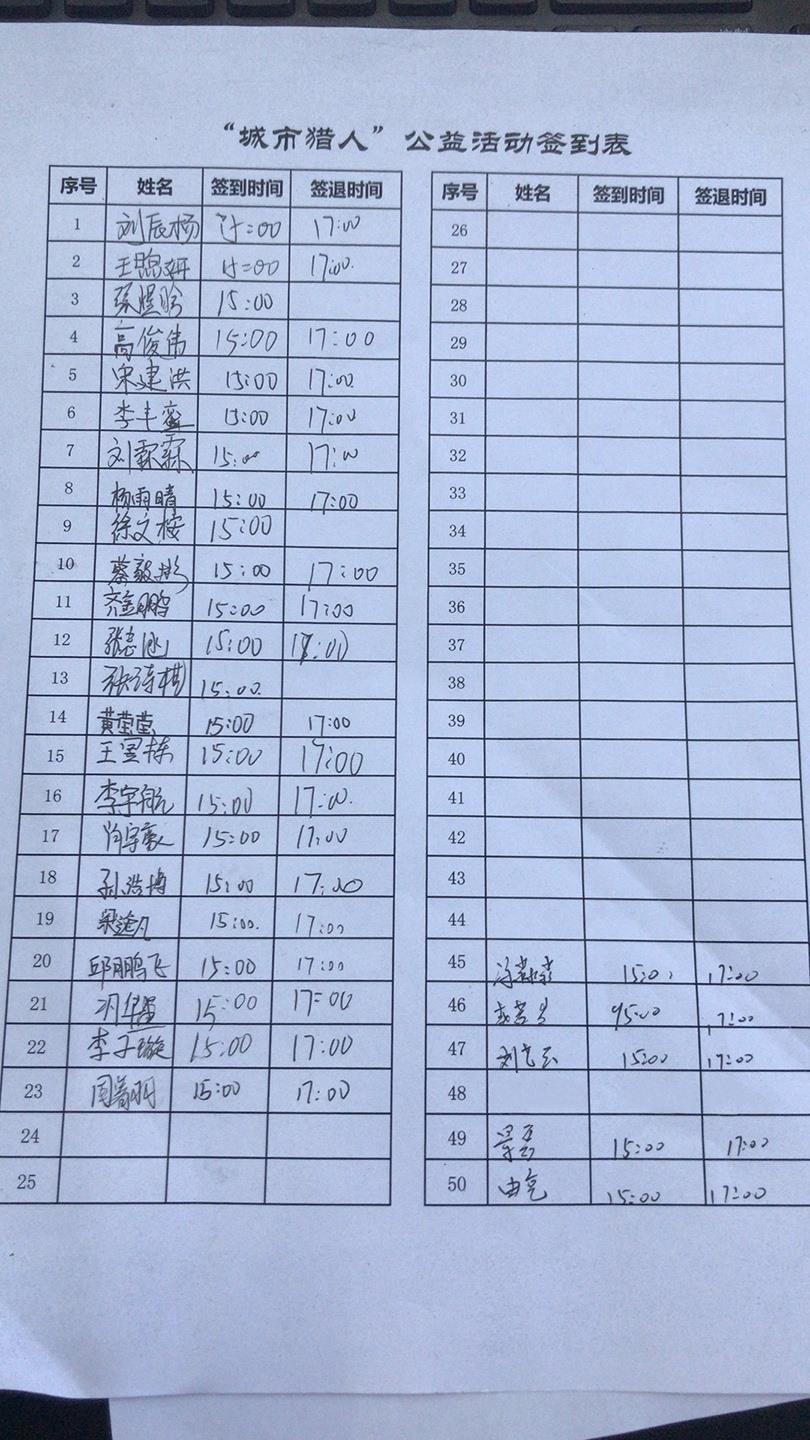 “城市猎人”公益活动签到表
序号 姓名 签到时间 签退时间
1 刘辰杨 15:00 17:00
2 15:00 17:00.
3 15:00
4 高俊伟 15:00 17:00
5 宋建洪 15:00 17:00
6 李丰 15:00 17:00
7 刘霖 15:00 17:00
8 杨雨晴 15:00 17:00
9 徐文桉 15:00
10 蔡毅彬 15:00 17:00
11 齐鑫鹏 15:00 17:00
12 张志 15:00 17:00
13 张诗棋 15:00.
14 黄莹莹 15:00 17:00
15 王昱栋 15:00 17:00
16 李宇航 15:00 17:00.
17 肖宇豪 15:00 17:00
18 孙浩博 15:00 17:00
19 梁逢凡 15:00. 17:00
20 邱鹏飞 15:00 17:00
21 15:00 17:00
22 李子璇 15:00 17:00
23 周 15:00 17:00
24
25
序号 姓名 签到时间 签退时间
26
27
28
29
30
31
32
33
34
35
36
37
38
39
40
41
42
43
44
45 15:00 17:00
46 15:00 17:00
47 15:00 17:00
48
49 15:00 17:00
50 15:00 17:00